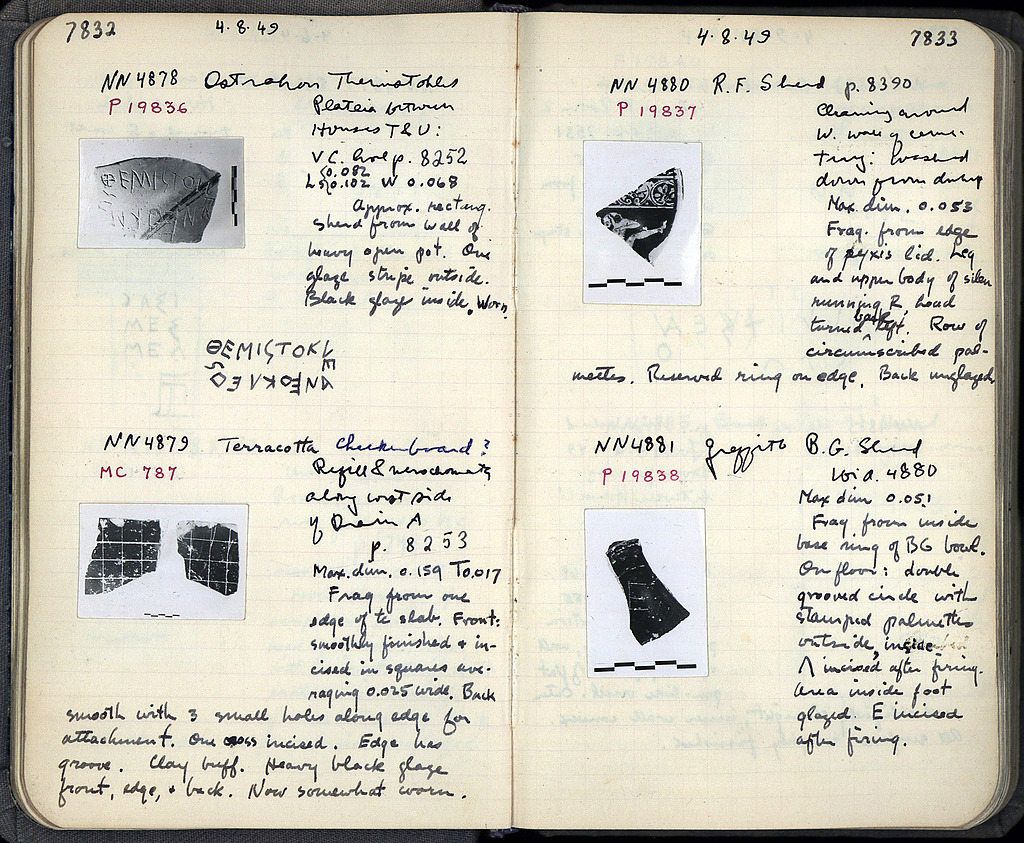 7832
4.8.49
NN 4878 Ostrakon Themistokles
P 19836
Plateia between
Houses T & U:
V C. level p. 8252
L 0.082
0.102 W 0.068
Approx. rectang.
sherd from wall of
heavy open pot. One
glaze stripe outside.
Black glaze inside. Worn.
ΘEMIΣTOKΛE
NEOKΛEOΣ
NN 4879 Terracotta Checkerboard?
MC 787
Refill &
along west side
of Drain A
p. 8253
Max. dim. 0.159 T0.017
Frag from one
edge of tc slab. Front:
smoothly finished & in-
cised in squares ave-
raging 0.025 wide. Back
smooth with 3 small holes along edge for
attachment. One cross incised. Edge has
groove. Clay buff. Heavy black glaze
front, edge, & back. Now somewhat worn.
4.8.49
7833
NN 4880 R.F. Sherd p. 8390
P 19837
Cleaning around
W. wall of ceme-
tery: washed
down from dump
Max. dim. 0.053
Frag. from edge
of pyxis lid. Leg
and upper body of silen
running R, head
turned back left. Row of
circumscribed pal-
mettes. Reserved ring on edge. Back unglazed.
NN 4881 Graffito B.G. Sherd
P 19838
ibid. 4880
Max dim 0.051
Frag from inside
base ring of BG bowl.
On floor: double
grooved circle with
stamped palmettes
outside, inside
Λ incised after firing.
Area inside foot
glazed. E incised
after firing.